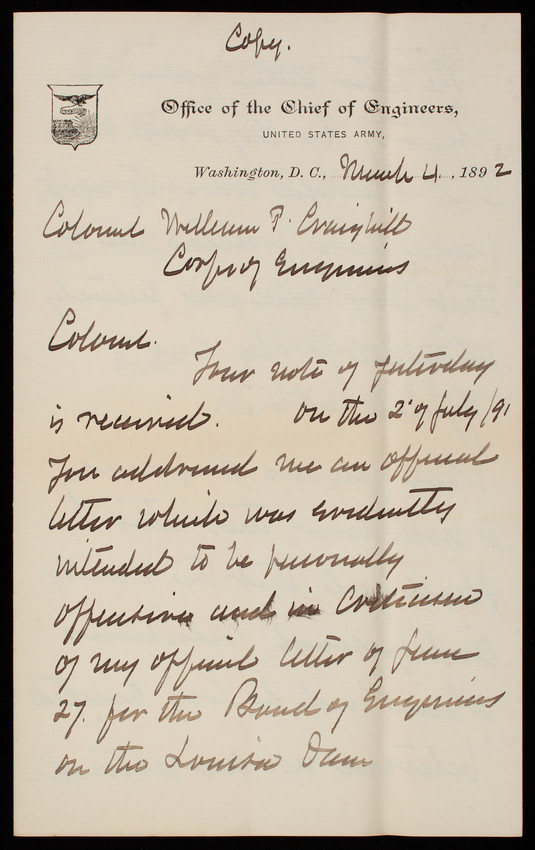 Copy.
Office of the Chief of Engineers,
UNITED STATES ARMY,
Washington, D. C., March 4, 1892
Colonel William P. Craighill
Corps of Engineers
Colonel.
Your note of yesterday
is received. On the 2d of July /91
You addressed me an official
letter which was evidently
intended to be personally
offensive and in criticism
of my official letter of June
27. for the Board of Engineers
on the Louisa Dam